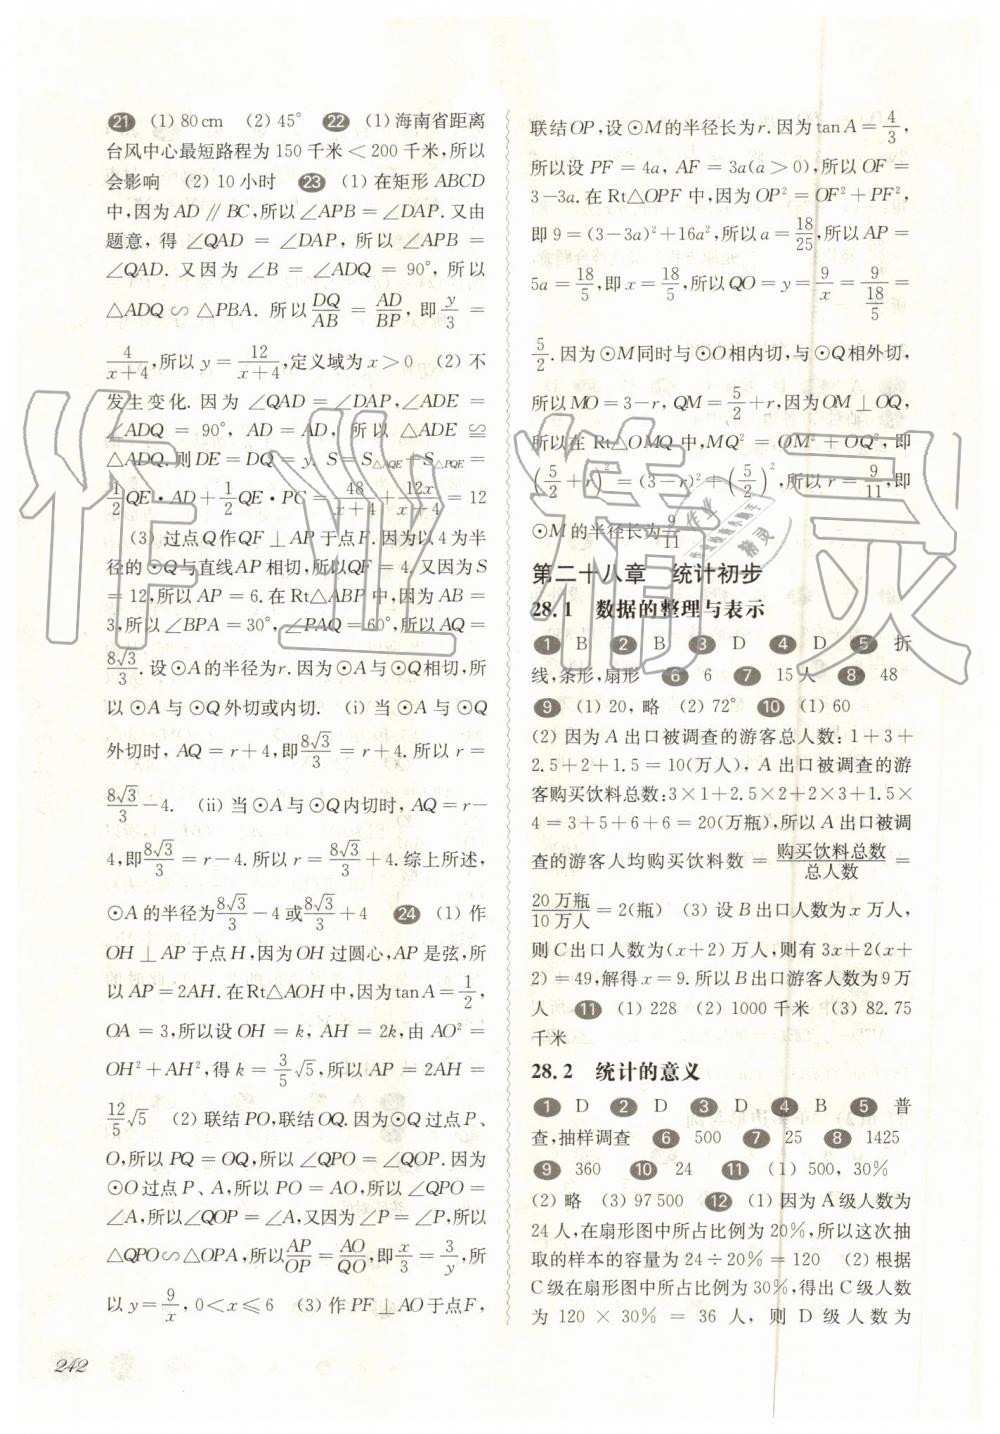 21 (1) 80 cm (2) 45° 22 (1) 海南省距离
台风中心最短路程为 150 千米 < 200 千米,所以
会影响 (2) 10 小时 23 (1) 在矩形 ABCD
中,因为 AD // BC,所以 ∠APB = ∠DAP. 又由
题意, 得 ∠QAD = ∠DAP, 所以 ∠APB =
∠QAD. 又因为 ∠B = ∠ADQ = 90°, 所以
△ADQ ∽ △PBA. 所以 DQ/AB = AD/BP, 即 y/3 =
4/(x+4),所以 y = 12/(x+4),定义域为 x > 0 (2) 不
发生变化. 因为 ∠QAD = ∠DAP, ∠ADE =
∠ADQ = 90°, AD = AD, 所以 △ADE ≌
△ADQ. 则 DE = DQ = y. S = S△AQE + S△PQE =
1/2 QE · AD + 1/2 QE · PC = 48/(x+4) + 12x/(x+4) = 12
(3) 过点 Q 作 QF ⊥ AP 于点 F. 因为以 4 为半
径的 ⊙Q 与直线 AP 相切,所以 QF = 4. 又因为 S
= 12,所以 AP = 6. 在 Rt△ABP 中,因为 AB =
3,所以 ∠BPA = 30°, ∠PAQ = 60°,所以 AQ =
8√3/3. 设 ⊙A 的半径为 r. 因为 ⊙A 与 ⊙Q 相切,所
以 ⊙A 与 ⊙Q 外切或内切. (i) 当 ⊙A 与 ⊙Q
外切时, AQ = r + 4,即 8√3/3 = r + 4. 所以 r =
8√3/3 − 4. (ii) 当 ⊙A 与 ⊙Q 内切时, AQ = r −
4,即 8√3/3 = r − 4. 所以 r = 8√3/3 + 4. 综上所述,
⊙A 的半径为 8√3/3 − 4 或 8√3/3 + 4 24 (1) 作
OH ⊥ AP 于点 H,因为 OH 过圆心,AP 是弦,所
以 AP = 2AH. 在 Rt△AOH 中,因为 tan A = 1/2,
OA = 3,所以设 OH = k, AH = 2k,由 AO² =
OH² + AH², 得 k = 3/5 √5, 所以 AP = 2AH =
12/5 √5 (2) 联结 PO,联结 OQ. 因为 ⊙Q 过点 P、
O,所以 PQ = OQ,所以 ∠QPO = ∠QOP. 因为
⊙O 过点 P、A,所以 PO = AO,所以 ∠QPO =
∠A,所以 ∠QOP = ∠A,又因为 ∠P = ∠P,所以
△QPO ∽ △OPA,所以 AP/OP = AO/QO,即 x/3 = 3/y,所
以 y = 9/x, 0 < x ⩽ 6 (3) 作 PF ⊥ AO 于点 F,
242
联结 OP,设 ⊙M 的半径长为 r. 因为 tan A = 4/3,
所以设 PF = 4a, AF = 3a(a > 0),所以 OF =
3 − 3a. 在 Rt△OPF 中,因为 OP² = OF² + PF²,
即 9 = (3 − 3a)² + 16a²,所以 a = 18/25,所以 AP =
5a = 18/5,即 x = 18/5,所以 QO = y = 9/x = 9/(18/5) =
5/2. 因为 ⊙M 同时与 ⊙O 相内切,与 ⊙Q 相外切,
所以 MO = 3 − r, QM = 5/2 + r,因为 OM ⊥ OQ,
所以在 Rt△OMQ 中, MQ² = OM² + OQ², 即
(5/2 + r)² = (3 − r)² + (5/2)²,所以 r = 9/11, 即
⊙M 的半径长为 9/11
第二十八章 统计初步
28.1 数据的整理与表示
1 B 2 B 3 D 4 D 5 折
线,条形,扇形 6 6 7 15 人 8 48
9 (1) 20, 略 (2) 72° 10 (1) 60
(2) 因为 A 出口被调查的游客总人数: 1 + 3 +
2.5 + 2 + 1.5 = 10(万人), A 出口被调查的游
客购买饮料总数: 3×1 + 2.5×2 + 2×3 + 1.5×
4 = 3 + 5 + 6 + 6 = 20(万瓶),所以 A 出口被调
查的游客人均购买饮料数 = 购买饮料总数/总人数 =
20 万瓶/10 万人 = 2(瓶) (3) 设 B 出口人数为 x 万人,
则 C 出口人数为 (x + 2) 万人,则有 3x + 2(x +
2) = 49,解得 x = 9. 所以 B 出口游客人数为 9 万
人 11 (1) 228 (2) 1000 千米 (3) 82.75
千米
28.2 统计的意义
1 D 2 D 3 D 4 B 5 普
查,抽样调查 6 500 7 25 8 1425
9 360 10 24 11 (1) 500, 30%
(2) 略 (3) 97 500 12 (1) 因为 A 级人数为
24 人,在扇形图中所占比例为 20%,所以这次抽
取的样本的容量为 24 ÷ 20% = 120 (2) 根据
C 级在扇形图中所占比例为 30%,得出 C 级人数
为 120 × 30% = 36 人, 则 D 级人数为
作业精灵